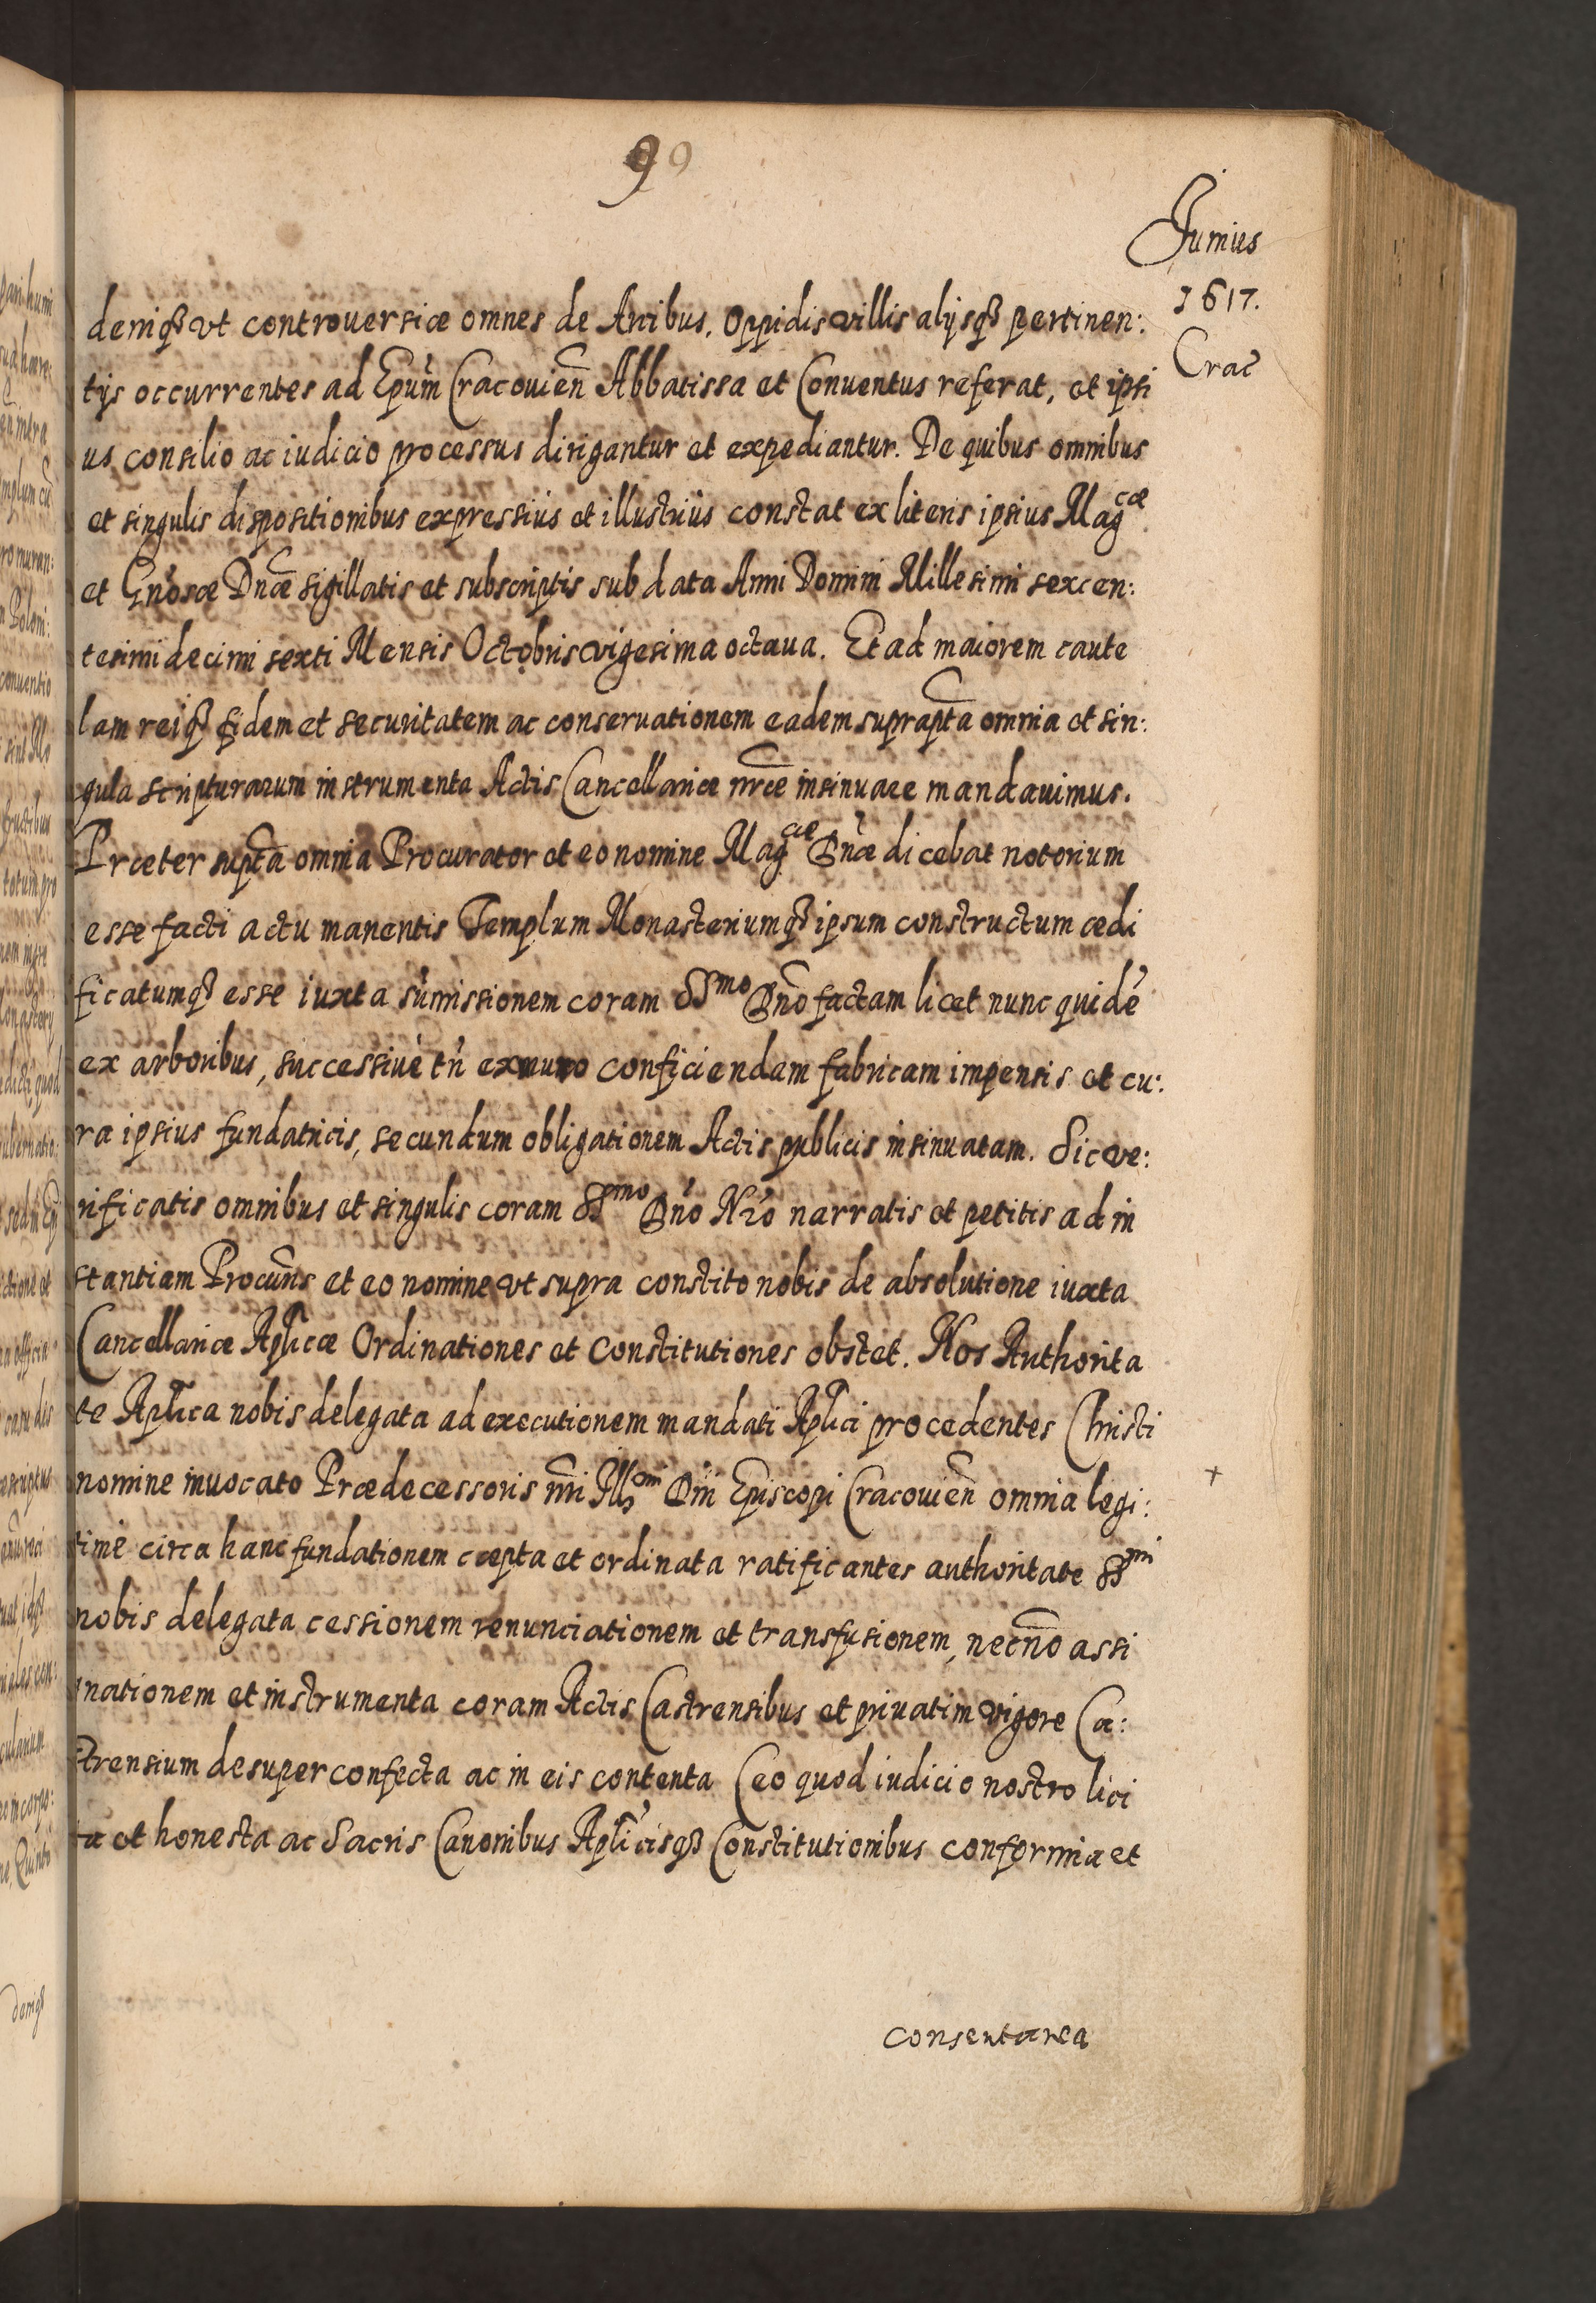 99
Junius
1617.
Crac̃
deniqȝ vt controuersiæ omnes de Aribus, Oppidis villis alijsqȝ pertinen:
tijs occurrentes ad Epũm Cracouien̄ Abbatissa et Conuentus referat, et ipsi
us consilio ac iudicio processus dirigantur et expediantur. De quibus omnibus
et singulis dispositionibus expressiùs et illustriùs constat ex literis ipsius Mag^cæ
et Gñosæ Dñæ sigillatis et subscriptis sub data Anni Domini Millesimi sexcen:
tesimi decimi sexti Mensis Octobris vigesima octaua. Et ad maiorem caute
lam reiqȝ fidem et securitatem ac conseruationem eadem suprap̃ta omnia et sin:
gula scripturarum instrumenta Actis Cancellariæ nr̃æ insinuare mandauimus.
Præter sup̃ta omnia Procurator et eo nomine Mag^cæ Dñæ dicebat notorium
esse facti actu manentis Templum Monasteriumqȝ ipsum constructum ædi
ficatumqȝ esse iuxta sũmissionem coram SS^mo Dño factam licet nunc quidẽ
ex arboribus, successiuè tñ ex muro conficiendam fabricam impensis et cu:
ra ipsius fundatricis, secundum obligationem Actis publicis insinuatam. Sic ve:
rificatis omnibus et singulis coram SS^mo Dño Nr̃o narratis et petitis ad in
stantiam Procur̃ns et eo nomine vt supra constito nobis de absolutione iuxta
Cancellariæ Apl̃icæ Ordinationes et Constitutiones obstet. Nos Authorita
te Apl̃ica nobis delegata ad executionem mandati Apl̃ici procedentes Christi
nomine inuocato Prædecessoris nr̃i Ill^mi Dñi Episcopi Cracouien̄ omnia legi:
+
timè circa hanc fundationem cœpta et ordinata ratificantes authoritate SS^mi
nobis delegata cessionem renunciationem et transfusionem, necñō assi
gnationem et instrumenta coram Actis Castrensibus et priuatim vigore Ca:
strensium desuper confecta ac in eis contenta (eo quod iudicio nostro lici
ta et honesta ac Sacris Canonibus Apl̃icisqȝ Constitutionibus conformia et
consentanea